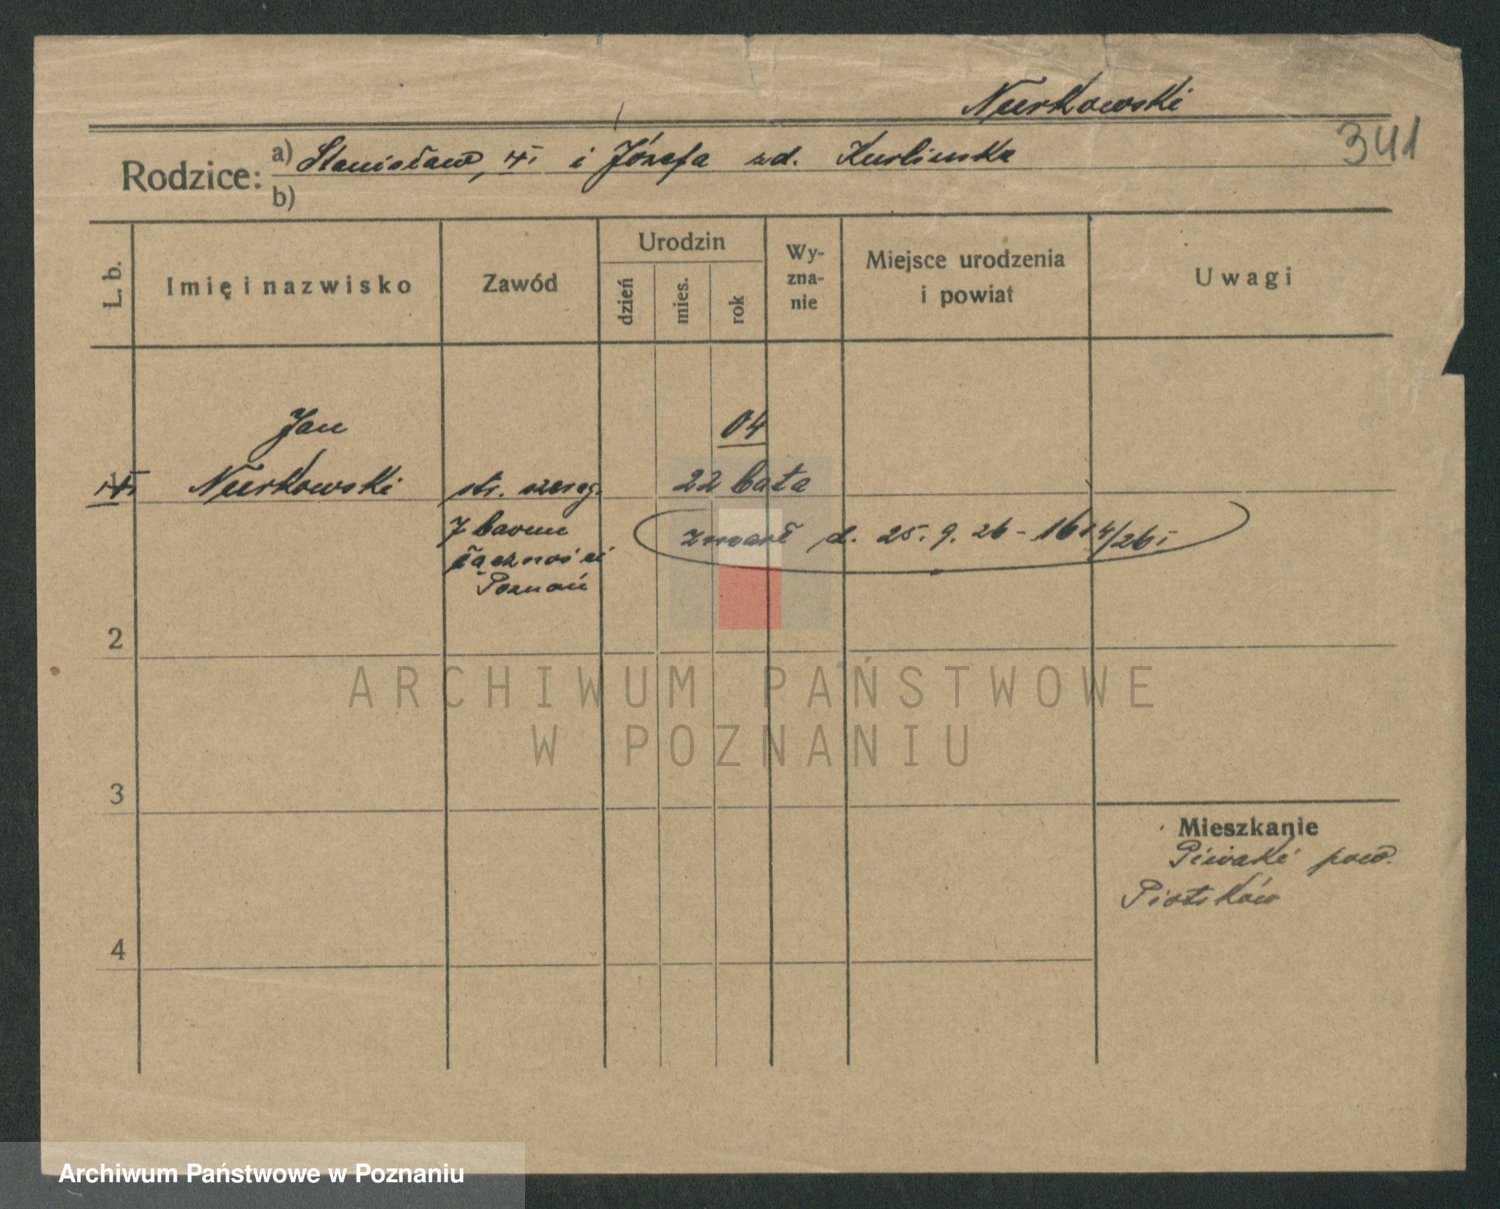 Nurkowski
341
Rodzice: a) Stanisław, i Józefa zd. Kurlinska
b)
L. b.
Imię i nazwisko
Zawód
Urodzin
dzień
mies.
rok
Wy-
zna-
nie
Miejsce urodzenia
i powiat
Uwagi
Jan
04
Nurkowski
str. szereg.
22 lata
7 baonu
zmarł d. 25. 9. 26 - 1614/26
łączności
Poznań
2
ARCHIWUM PAŃSTWOWE
W POZNANIU
3
Mieszkanie
Piwaki pow.
Piotrków
4
Archiwum Państwowe w Poznaniu